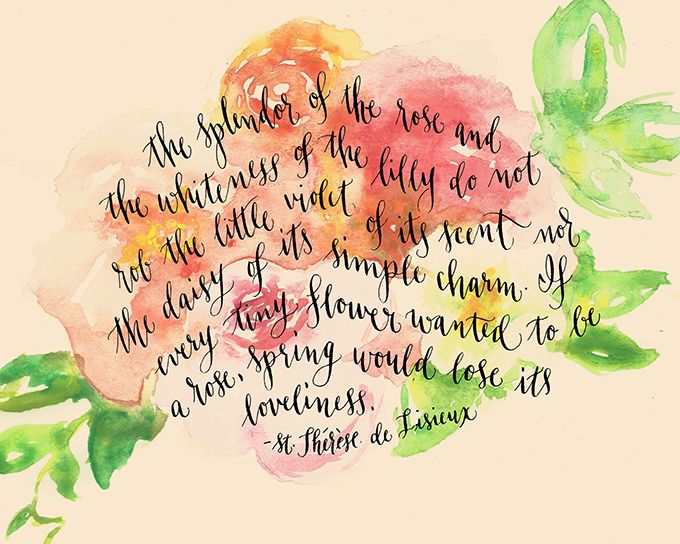 the splendor of the rose and
the whiteness of the lilly do not
rob the little violet of its scent nor
the daisy of its simple charm. If
every tiny flower wanted to be
a rose, spring would lose its
loveliness.
-St. Thérèse de Lisieux